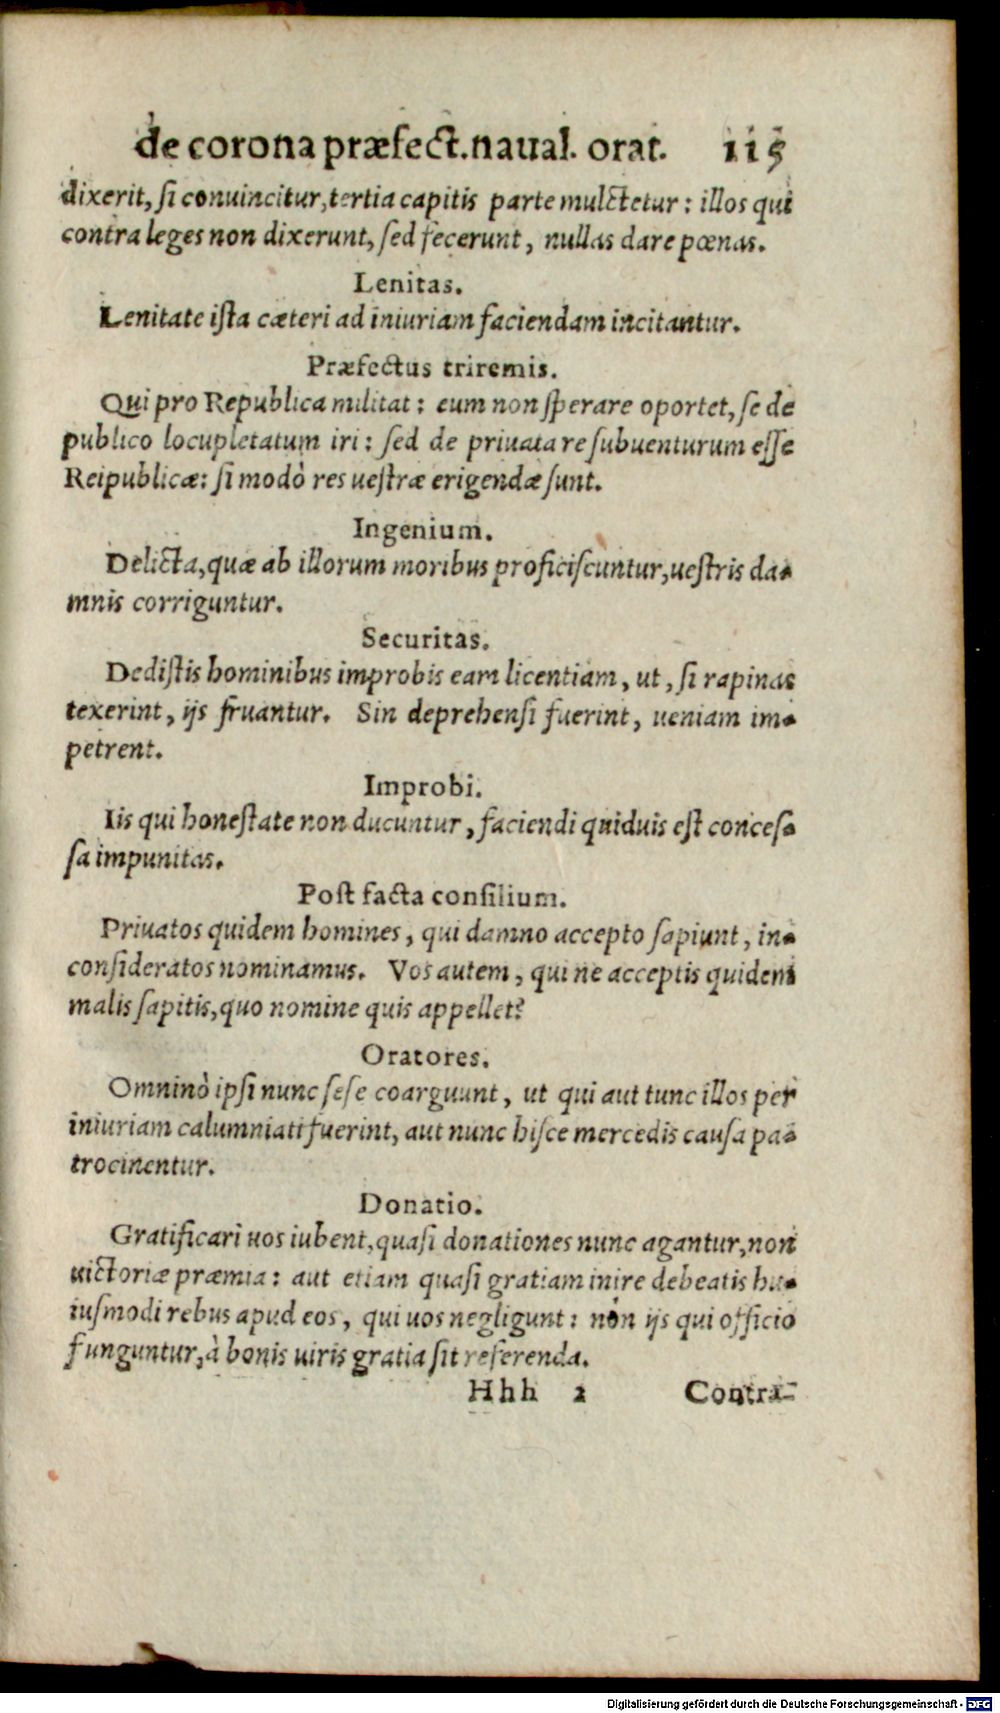 de corona præfect. naual. orat. 115
dixerit, si conuincitur, tertia capitis parte mulctetur: illos qui
contra leges non dixerunt, sed fecerunt, nullas dare pœnas.
Lenitas.
Lenitate ista cæteri ad iniuriam faciendam incitantur.
Præfectus triremis.
Qui pro Republica militat: eum non sperare oportet, se de
publico locupletatum iri: sed de priuata re subuenturum esse
Reipublicæ: si modò res uestræ erigendæ sunt.
Ingenium.
Delicta, quæ ab illorum moribus proficiscuntur, uestris da-
mnis corriguntur.
Securitas.
Dedistis hominibus improbis eam licentiam, ut, si rapinas
texerint, ijs fruantur. Sin deprehensi fuerint, ueniam im-
petrent.
Improbi.
Iis qui honestate non ducuntur, faciendi quiduis est conces-
sa impunitas.
Post facta consilium.
Priuatos quidem homines, qui damno accepto sapiunt, in-
consideratos nominamus. Vos autem, qui ne acceptis quidem
malis sapitis, quo nomine quis appellet?
Oratores.
Omninò ipsi nunc sese coarguunt, ut qui aut tunc illos per
iniuriam calumniati fuerint, aut nunc hisce mercedis causa pa-
trocinentur.
Donatio.
Gratificari uos iubent, quasi donationes nunc agantur, non
uictoriæ præmia: aut etiam quasi gratiam inire debeatis hu-
iusmodi rebus apud eos, qui uos negligunt: nòn ijs qui officio
funguntur, à bonis uiris gratia sit referenda.
Hhh 2 Contra-
Digitalisierung gefördert durch die Deutsche Forschungsgemeinschaft - DFG